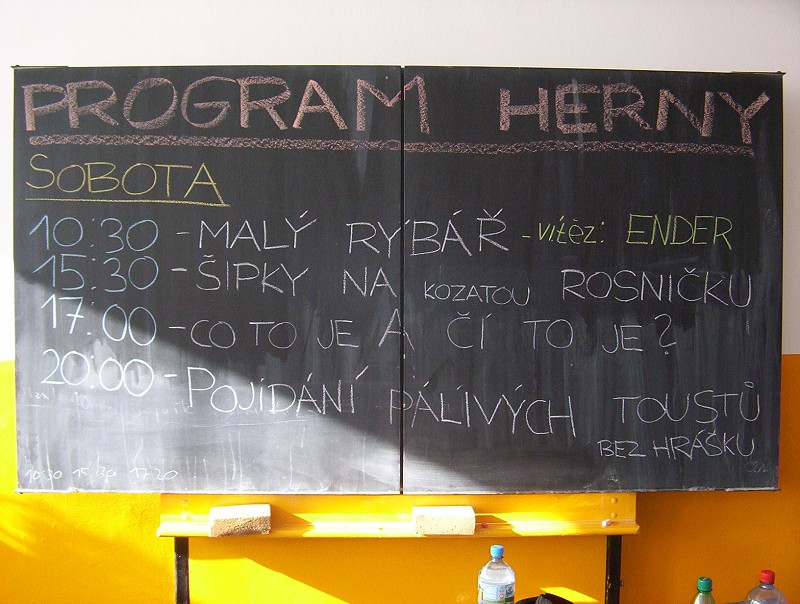 PROGRAM HERNY
SOBOTA
10:30 - MALÝ RYBÁŘ - vítěz: ENDER
15:30 - ŠIPKY NA KOZATOU ROSNIČKU
17:00 - CO TO JE A ČÍ TO JE?
20:00 - POJÍDÁNÍ PÁLIVÝCH TOUSTŮ
BEZ HRÁŠKU
10:30 15:30 17:20